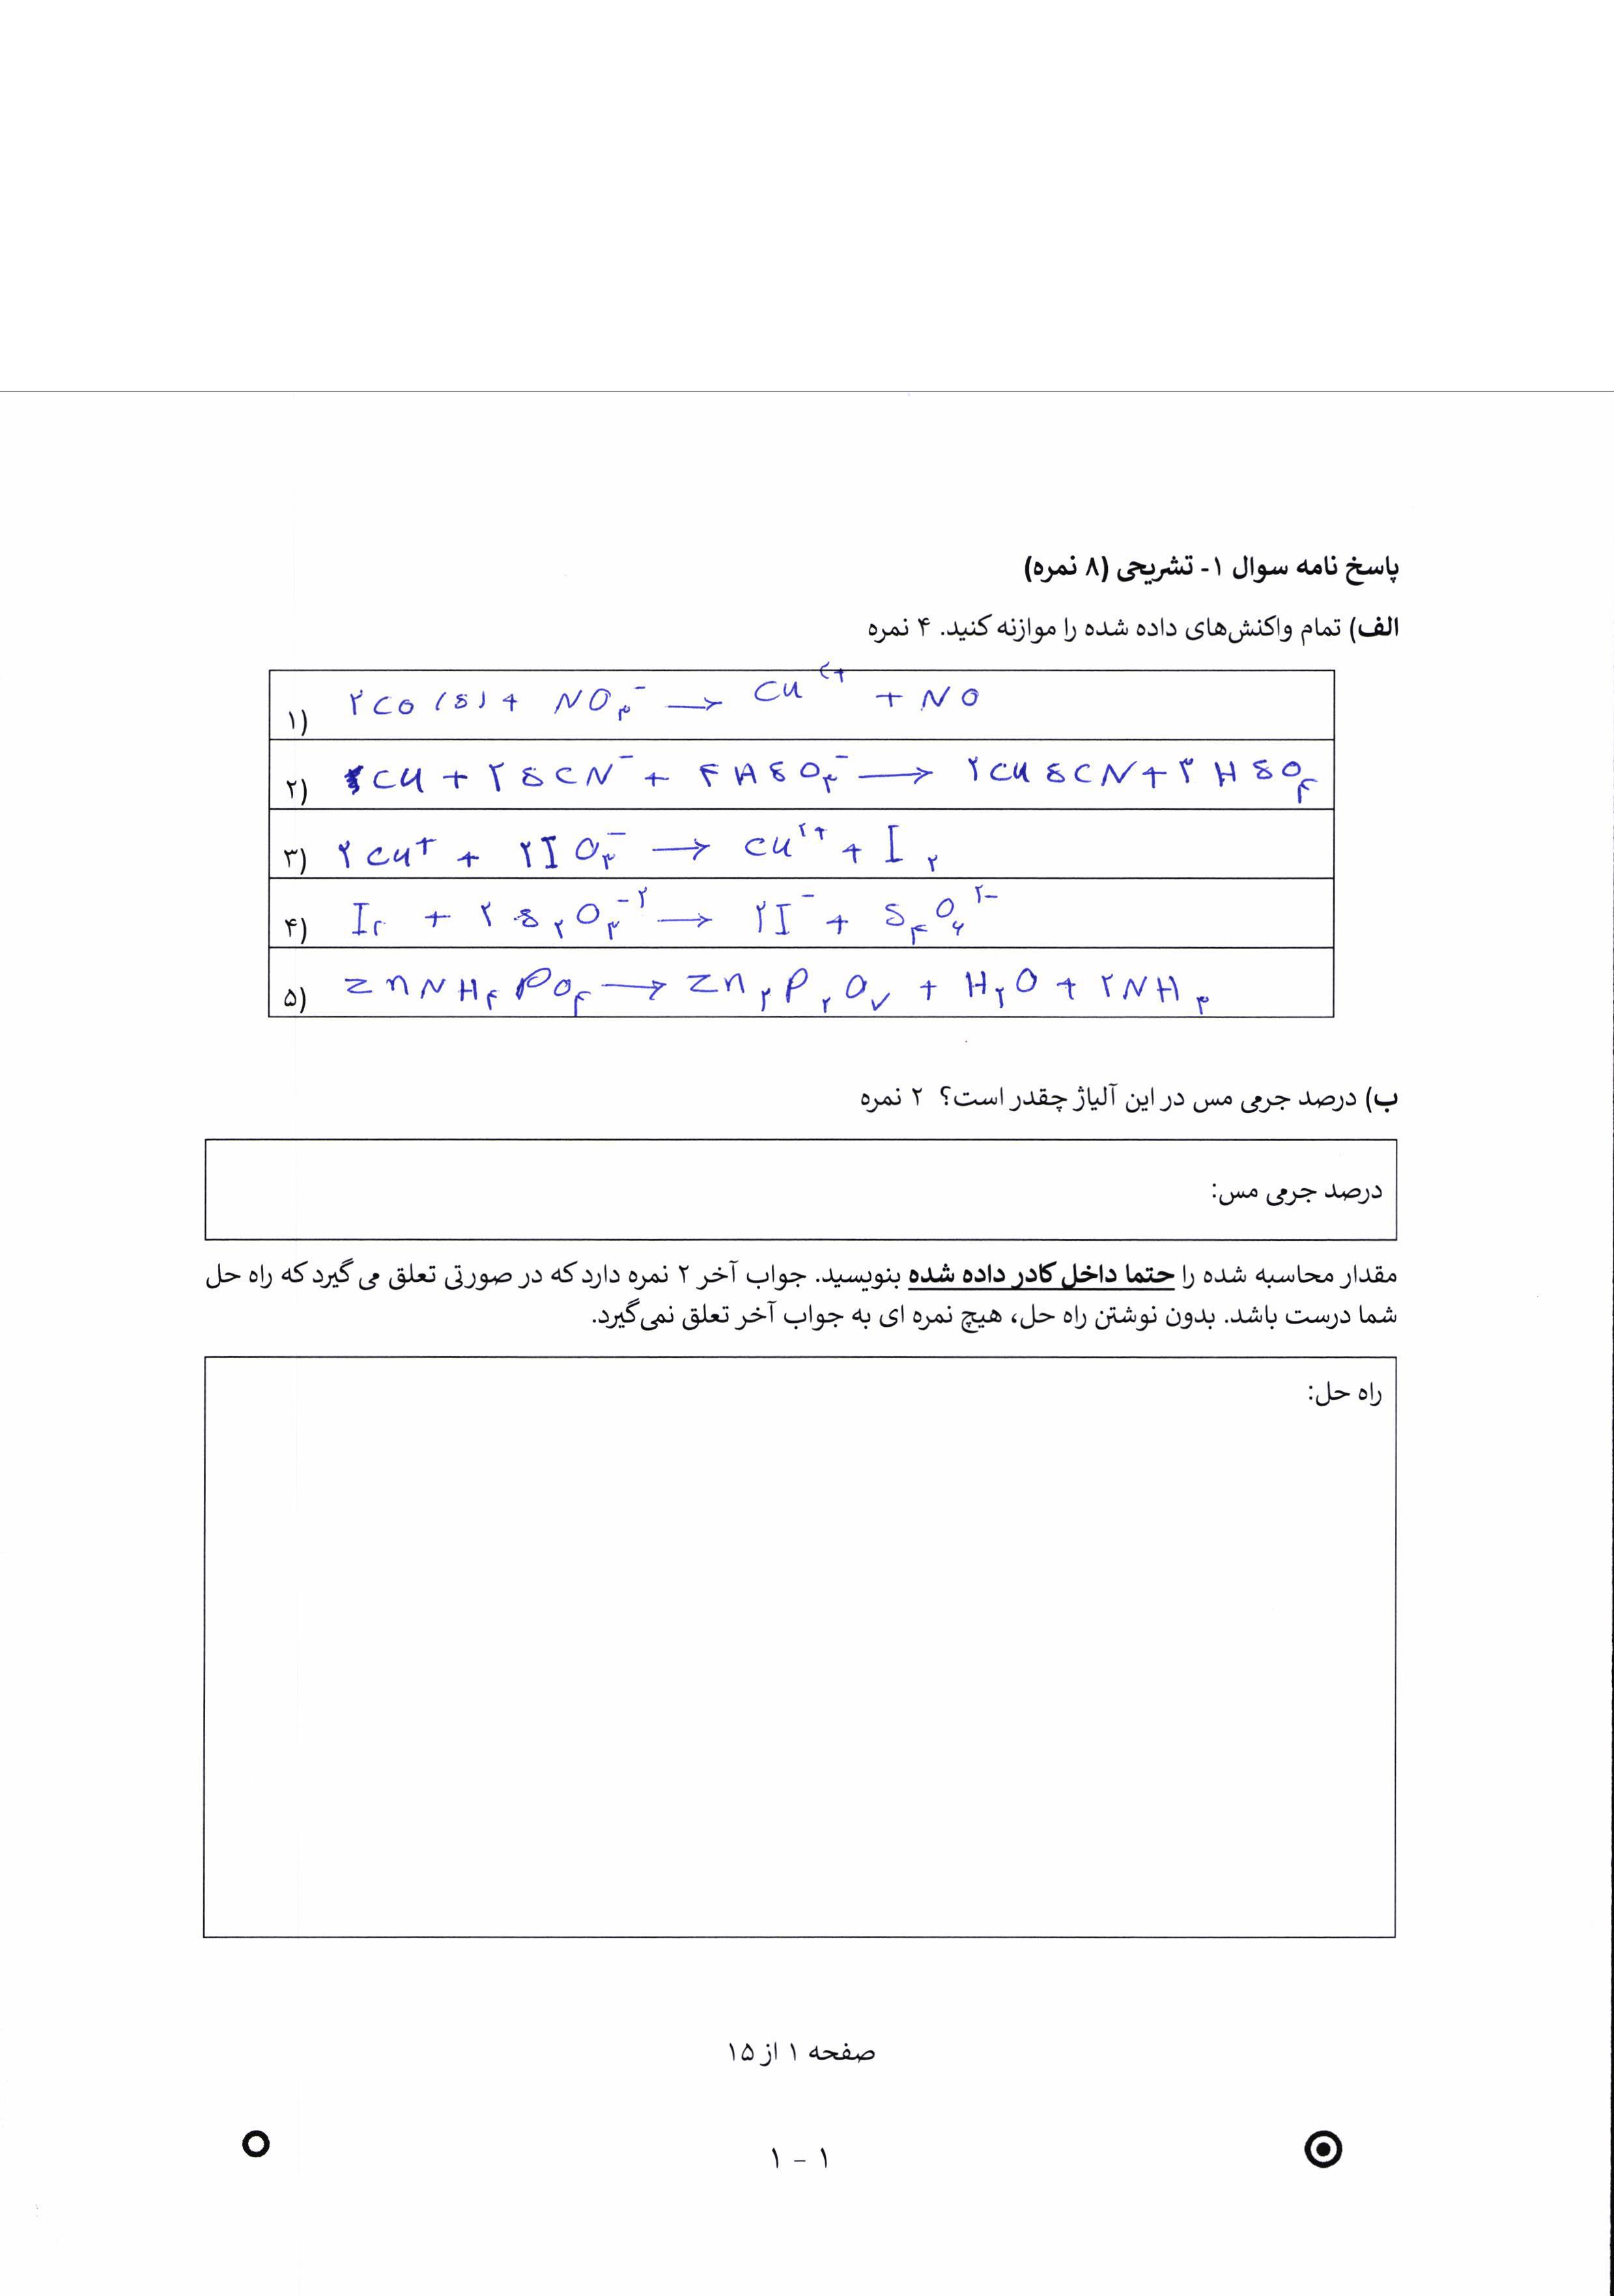 پاسخ نامه سوال ۱- تشریحی (۸ نمره)
الف) تمام واکنش‌های داده شده را موازنه کنید. ۴ نمره
۱) ۲CO (s) + NO₃⁻ → Cu²⁺ + NO
۲) Cu + ۲SCN⁻ + ۴HSO₃⁻ → ۲CuSCN + ۳HSO₄
۳) ۲Cu⁺ + ۲IO₃⁻ → Cu²⁺ + I₂
۴) I₂ + ۲S₂O₃⁻² → ۲I⁻ + S₄O₆²⁻
۵) ZnNH₄PO₄ → Zn₂P₂O₇ + H₂O + ۲NH₃
ب) درصد جرمی مس در این آلیاژ چقدر است؟ ۲ نمره
درصد جرمی مس:
مقدار محاسبه شده را حتما داخل کادر داده شده بنویسید. جواب آخر ۲ نمره دارد که در صورتی تعلق می گیرد که راه حل
شما درست باشد. بدون نوشتن راه حل، هیچ نمره ای به جواب آخر تعلق نمی‌گیرد.
راه حل:
صفحه ۱ از ۱۵
۱ - ۱